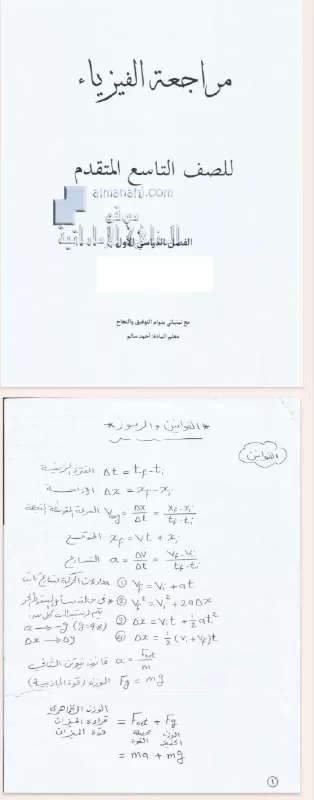 مراجعة الفيزياء
للصف التاسع المتقدم
almanahj.com
موقع
المناهج الإماراتية
الفصل الدراسي الأول
مع تمنياتي بدوام التوفيق والنجاح
معلم المادة: أحمد سالم
* القوانين والرموز *
القوانين
الفترة الزمنية Δt = tf - ti
الإزاحة Δx = xf - xi
السرعة المتوسطة المتجهة Vavg = Δx/Δt = (xf - xi)/(tf - ti)
الموقع xf = vt + xi
التسارع a = Δv/Δt = (vf - vi)/(tf - ti)
معادلات الحركة بتسارع ثابت ① vf = vi + at
* في حالة مسائل السقوط الحر ② vf² = vi² + 2aΔx
a → -g (g=9.8) ③ Δx = vit + ½at²
Δx → Δy ④ Δx = ½(vi + vf)t
قانون نيوتن الثاني a = Fnet/m
الوزن (قوة الجاذبية) Fg = mg
الوزن الظاهري
قراءة الميزان = Fnet + Fg
قوة الميزان
محصلة القوة
الوزن الحقيقي
= ma + mg
①